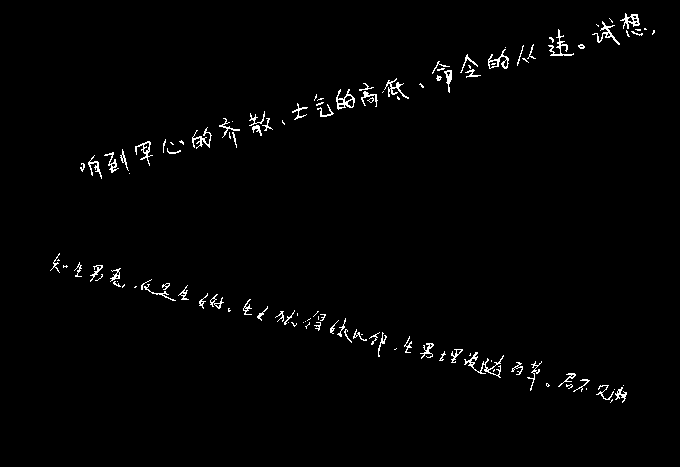 响到军心的齐散、士气的高低、命令的从违。试想,
知生男恶,反是生女好。生女犹得嫁比邻,生男埋没随百草。君不见